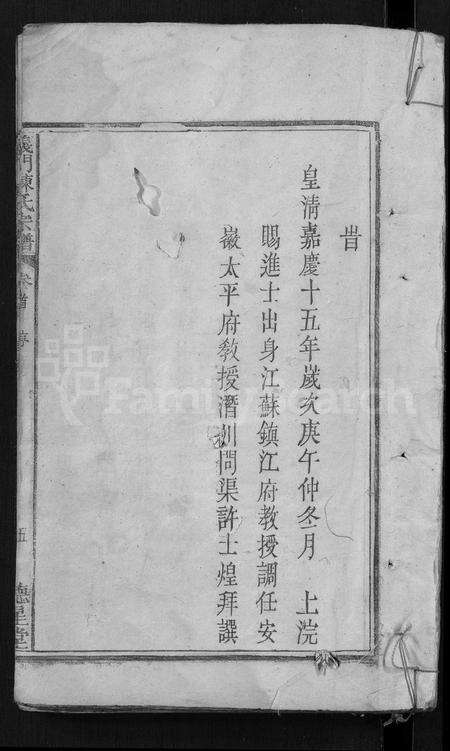 旹
皇清嘉慶十五年歲次庚午仲冬月　上浣
賜進士出身江蘇鎮江府教授調任安
徽太平府教授潛川問渠許士煌拜譔
義門陳氏宗譜
卷首
伍
德星堂
FamilySearch